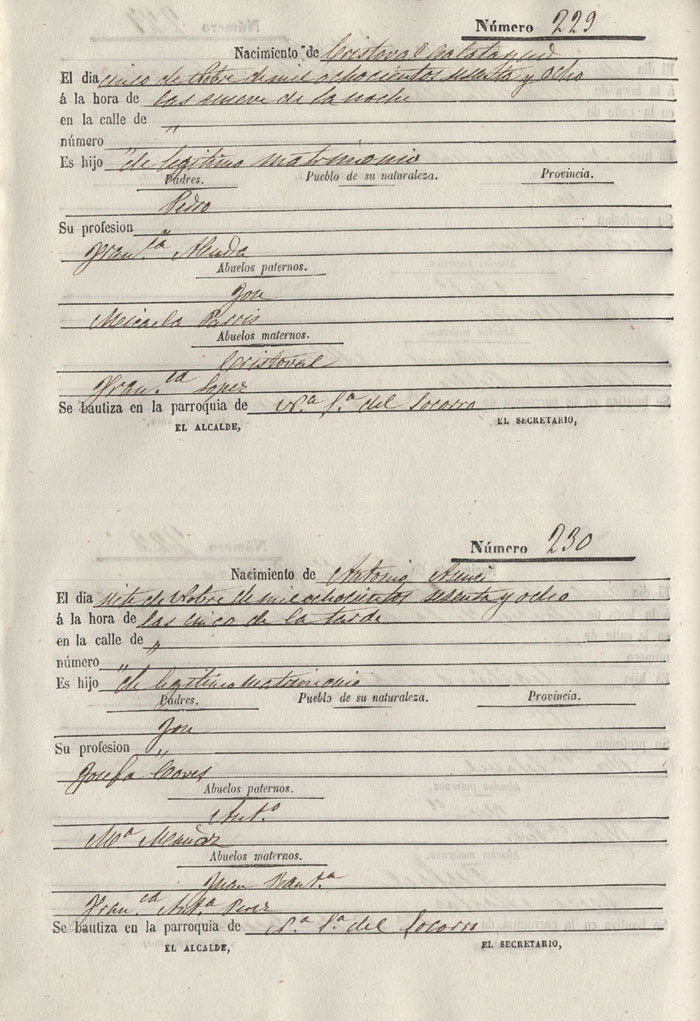 Número 229
Nacimiento de Cristoval Calatayud
El dia cinco de 8bre de mil ochocientos sesenta y ocho
á la hora de las nueve de la noche
en la calle de "
número
Es hijo "de legitimo matrimonio
Padres. Pueblo de su naturaleza. Provincia.
Pedro
Su profesion "
Fran.ca
Abuelos paternos.
Jose
Micaela
Abuelos maternos.
Cristoval
Fran.ca Lopez
Se bautiza en la parroquia de N.a S.a del Socorro
EL ALCALDE, EL SECRETARIO,
Número 230
Nacimiento de Antonio
El dia siete de de mil ochocientos sesenta y ocho
á la hora de las cinco de la tarde
en la calle de "
número "
Es hijo "de legitimo matrimonio
Padres. Pueblo de su naturaleza. Provincia.
Jose
Su profesion "
Josefa Coves
Abuelos paternos.
Ant.o
M.a
Abuelos maternos.
Juan Baut.a
Fran.ca Ant.a Perez
Se bautiza en la parroquia de N.a S.a del Socorro
EL ALCALDE, EL SECRETARIO,